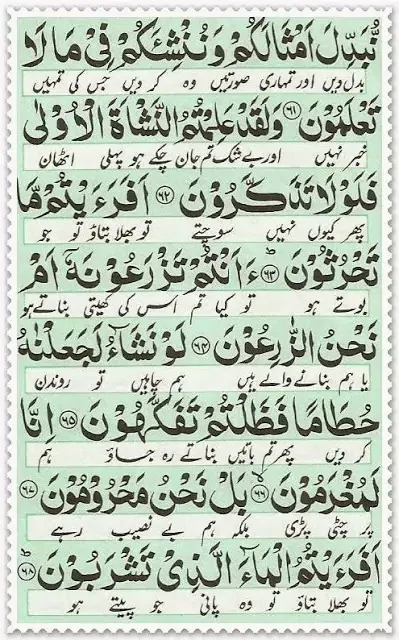 نُّبَدِّلَ اَمْثَالَكُمْ وَنُنْشِئَكُمْ فِىْ مَا لَا
بدل دیں اور تمہاری صورتیں وہ کر دیں جس کی تمہیں
تَعْلَمُوْنَ ﴿۶۱﴾ وَلَقَدْ عَلِمْتُمُ النَّشْاَةَ الْاُوْلٰى
خبر نہیں اور بے شک تم جان چکے ہو پہلی اٹھان
فَلَوْلَا تَذَكَّرُوْنَ ﴿۶۲﴾ اَفَرَءَيْتُمْ مَّا
پھر کیوں نہیں سوچتے تو بھلا بتاؤ تو جو
تَحْرُثُوْنَ ﴿۶۳﴾ ءَاَنْتُمْ تَزْرَعُوْنَهٗٓ اَمْ
بوتے ہو تو کیا تم اس کی کھیتی بناتے ہو
نَحْنُ الزّٰرِعُوْنَ ﴿۶۴﴾ لَوْ نَشَآءُ لَجَعَلْنٰهُ
یا ہم بنانے والے ہیں ہم چاہیں تو روندن
حُطَامًا فَظَلْتُمْ تَفَكَّهُوْنَ ﴿۶۵﴾ اِنَّا
کر دیں پھر تم باتیں بناتے رہ جاؤ ہم
لَمُغْرَمُوْنَ ﴿۶۶﴾ بَلْ نَحْنُ مَحْرُوْمُوْنَ ﴿۶۷﴾
پر چٹی پڑی بلکہ ہم بے نصیب رہے
اَفَرَءَيْتُمُ الْمَآءَ الَّذِىْ تَشْرَبُوْنَ ﴿۶۸﴾
تو بھلا بتاؤ تو وہ پانی جو پیتے ہو